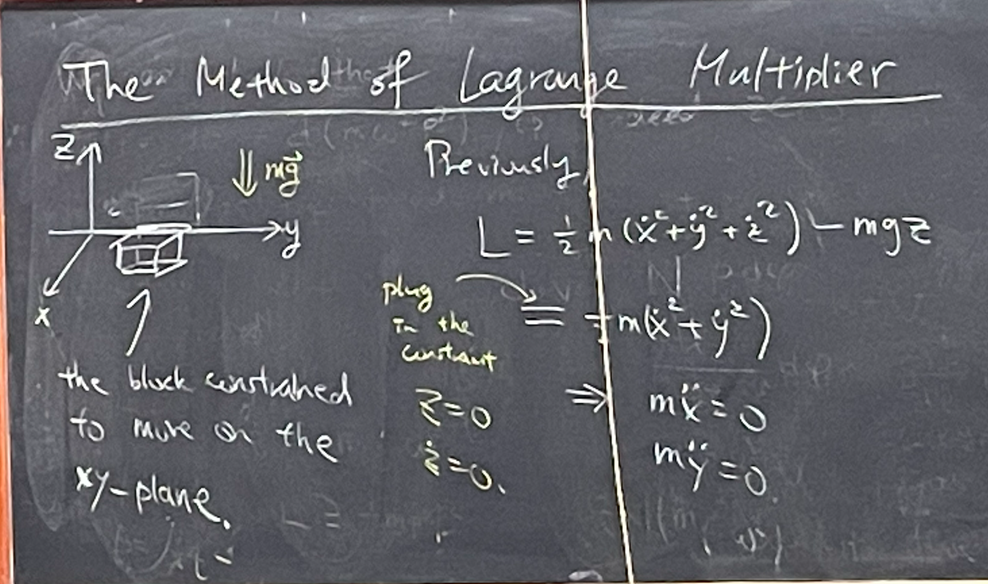 The Method of Lagrange Multiplier
Z
⇓ mg⃗
y
x
the block constrained
to move on the
xy-plane.
Previously,
L = ½ m (ẋ² + ẏ² + ż²) - mgz
plug
in the
constraint
z=0
ż=0.
= ½ m(ẋ² + ẏ²)
⇒ mẍ = 0
mÿ = 0.